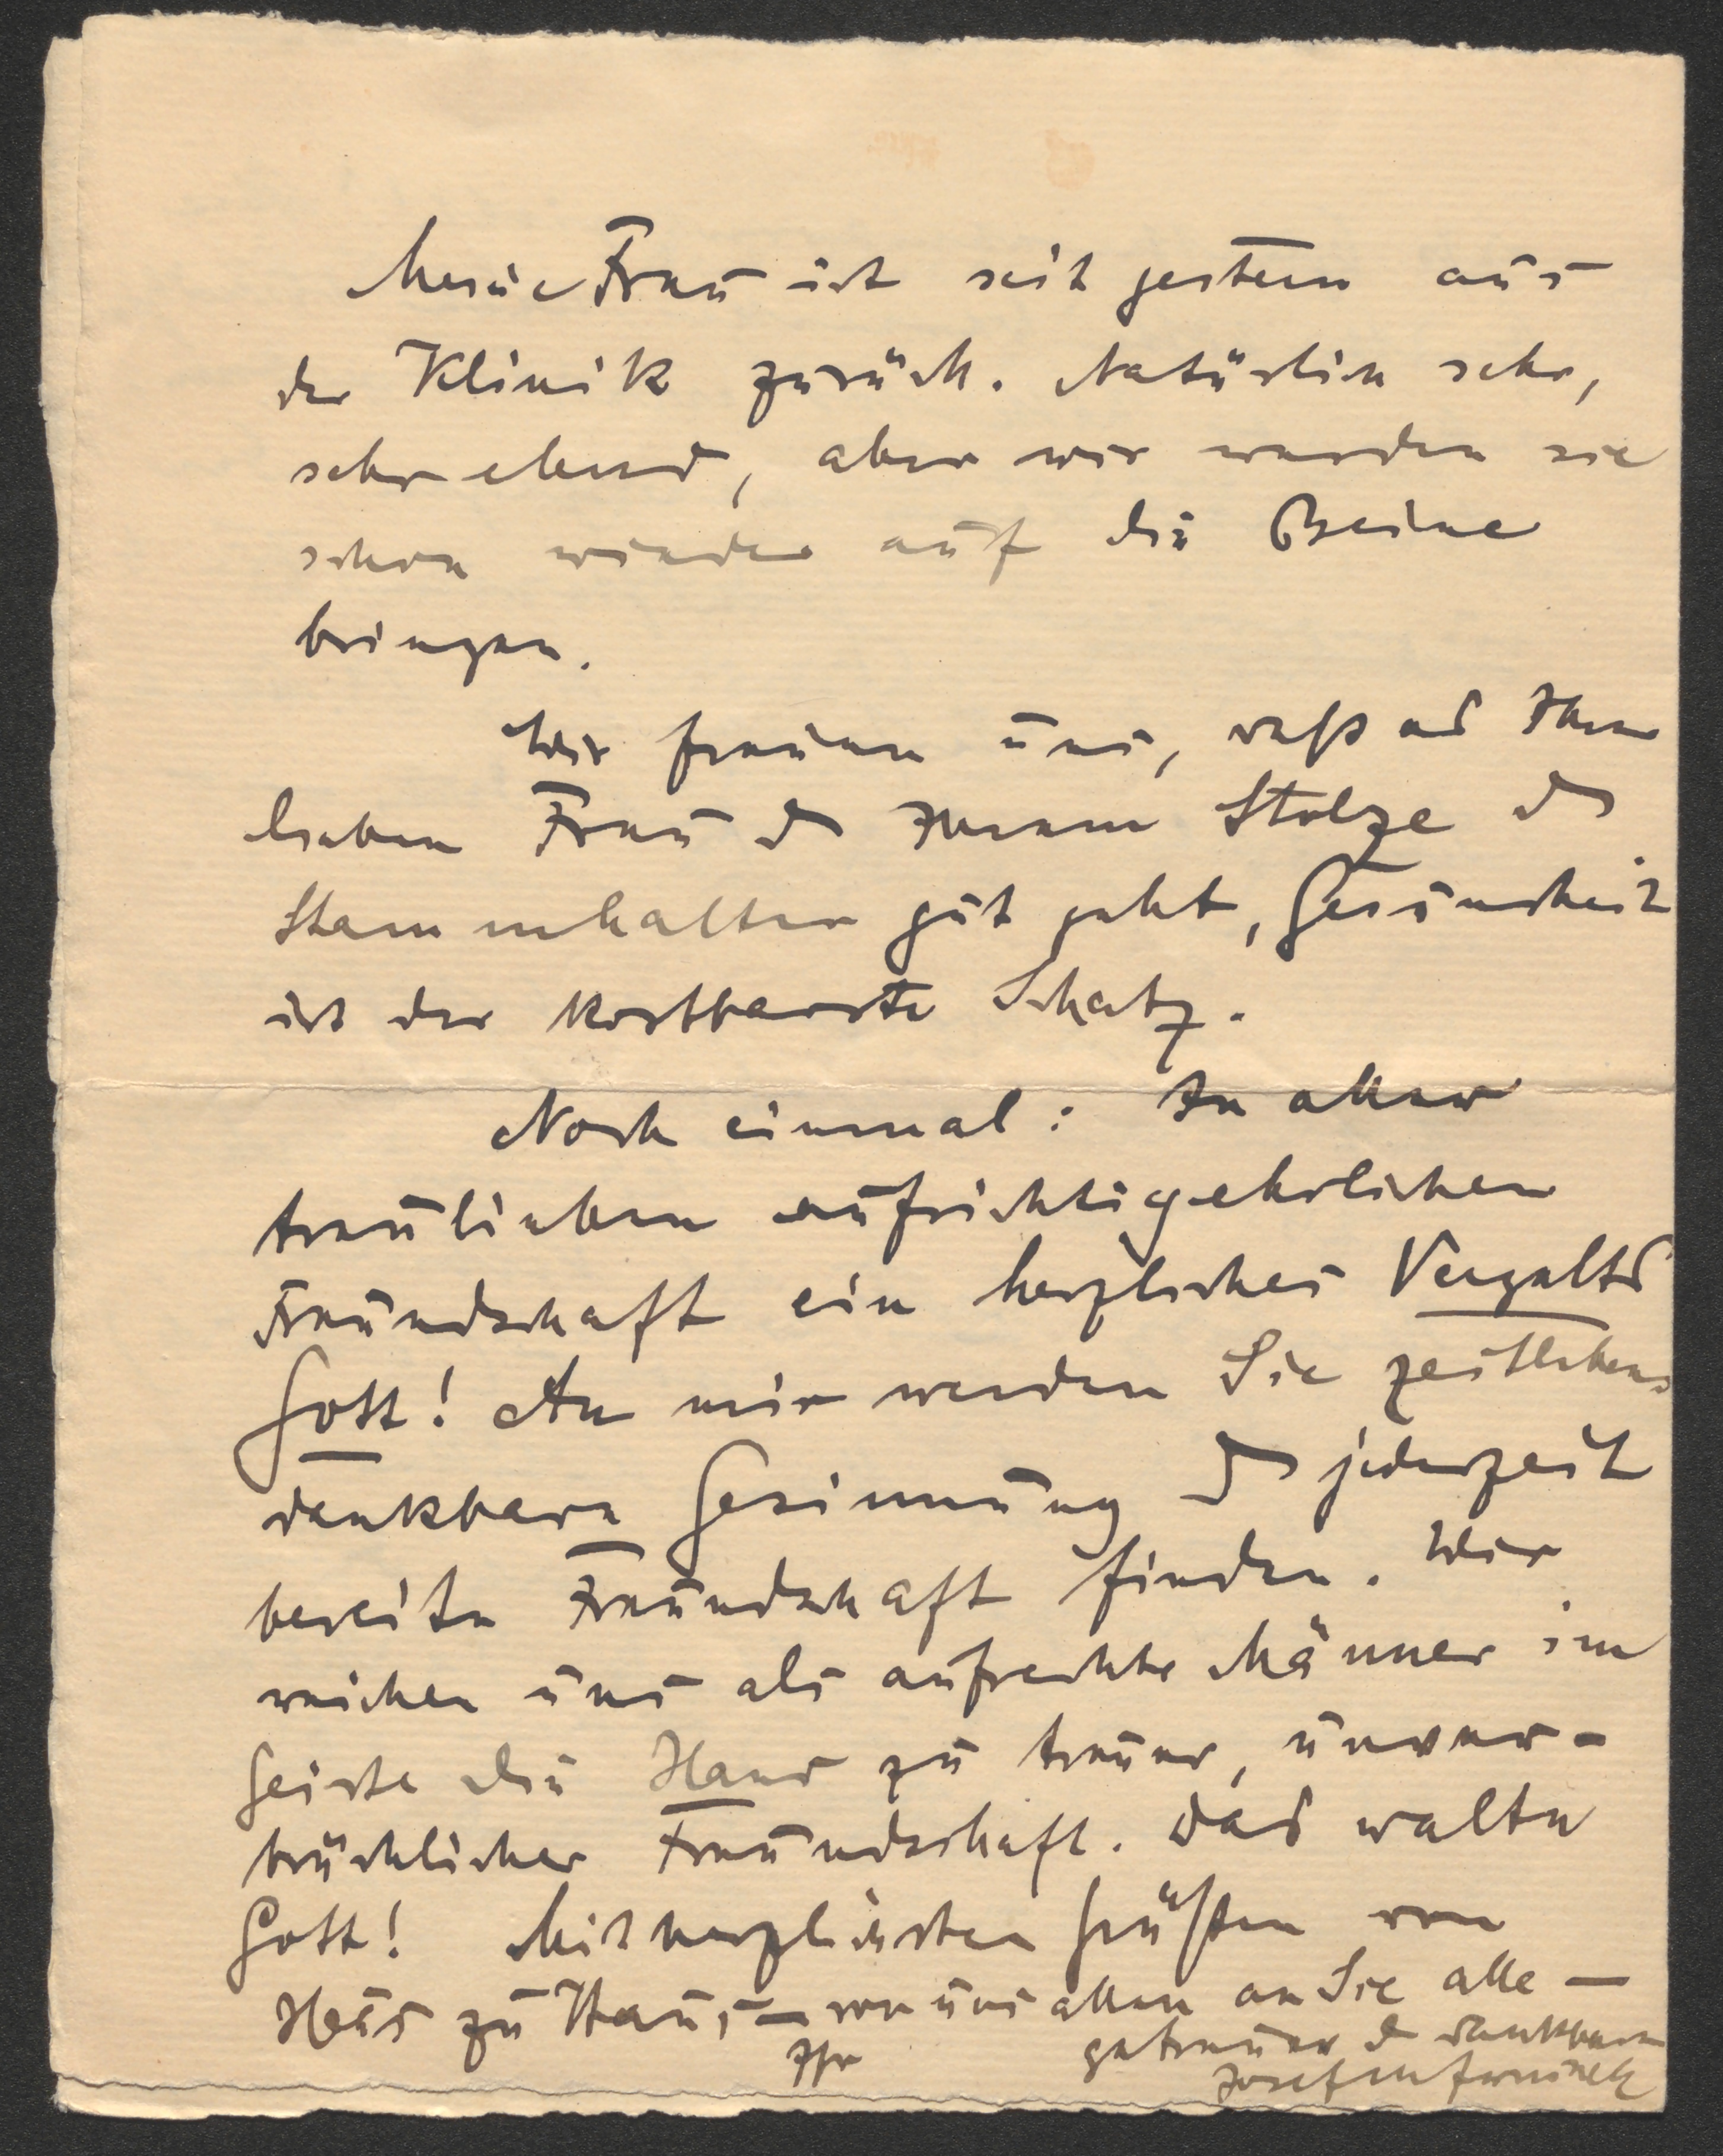 Meine Frau ist seit gestern aus
der Klinik zurück. Natürlich sehr,
sehr elend, aber wir werden sie
schon wieder auf die Beine
bringen.
Wir freuen uns, daß es Ihrer
lieben Frau & Ihrem Stolze &
Stammhalter gut geht, Gesundheit
ist der kostbarste Schatz.
Noch einmal: In aller
treulieben aufrichtigehrlichen
Freundschaft ein herzliches Vergelts
Gott! An mir werden Sie zeitlebens
dankbare Gesinnung & jederzeit
bereite Freundschaft finden. Wir
reichen uns als aufrechte Männer im
Geiste die Hand zu treuer, unver-
brüchlicher Freundschaft. Das walte
Gott! Mit herzlichsten Grüßen von
Haus zu Haus – von uns allen an Sie alle –
Ihr getreuer & dankbarer
Josef